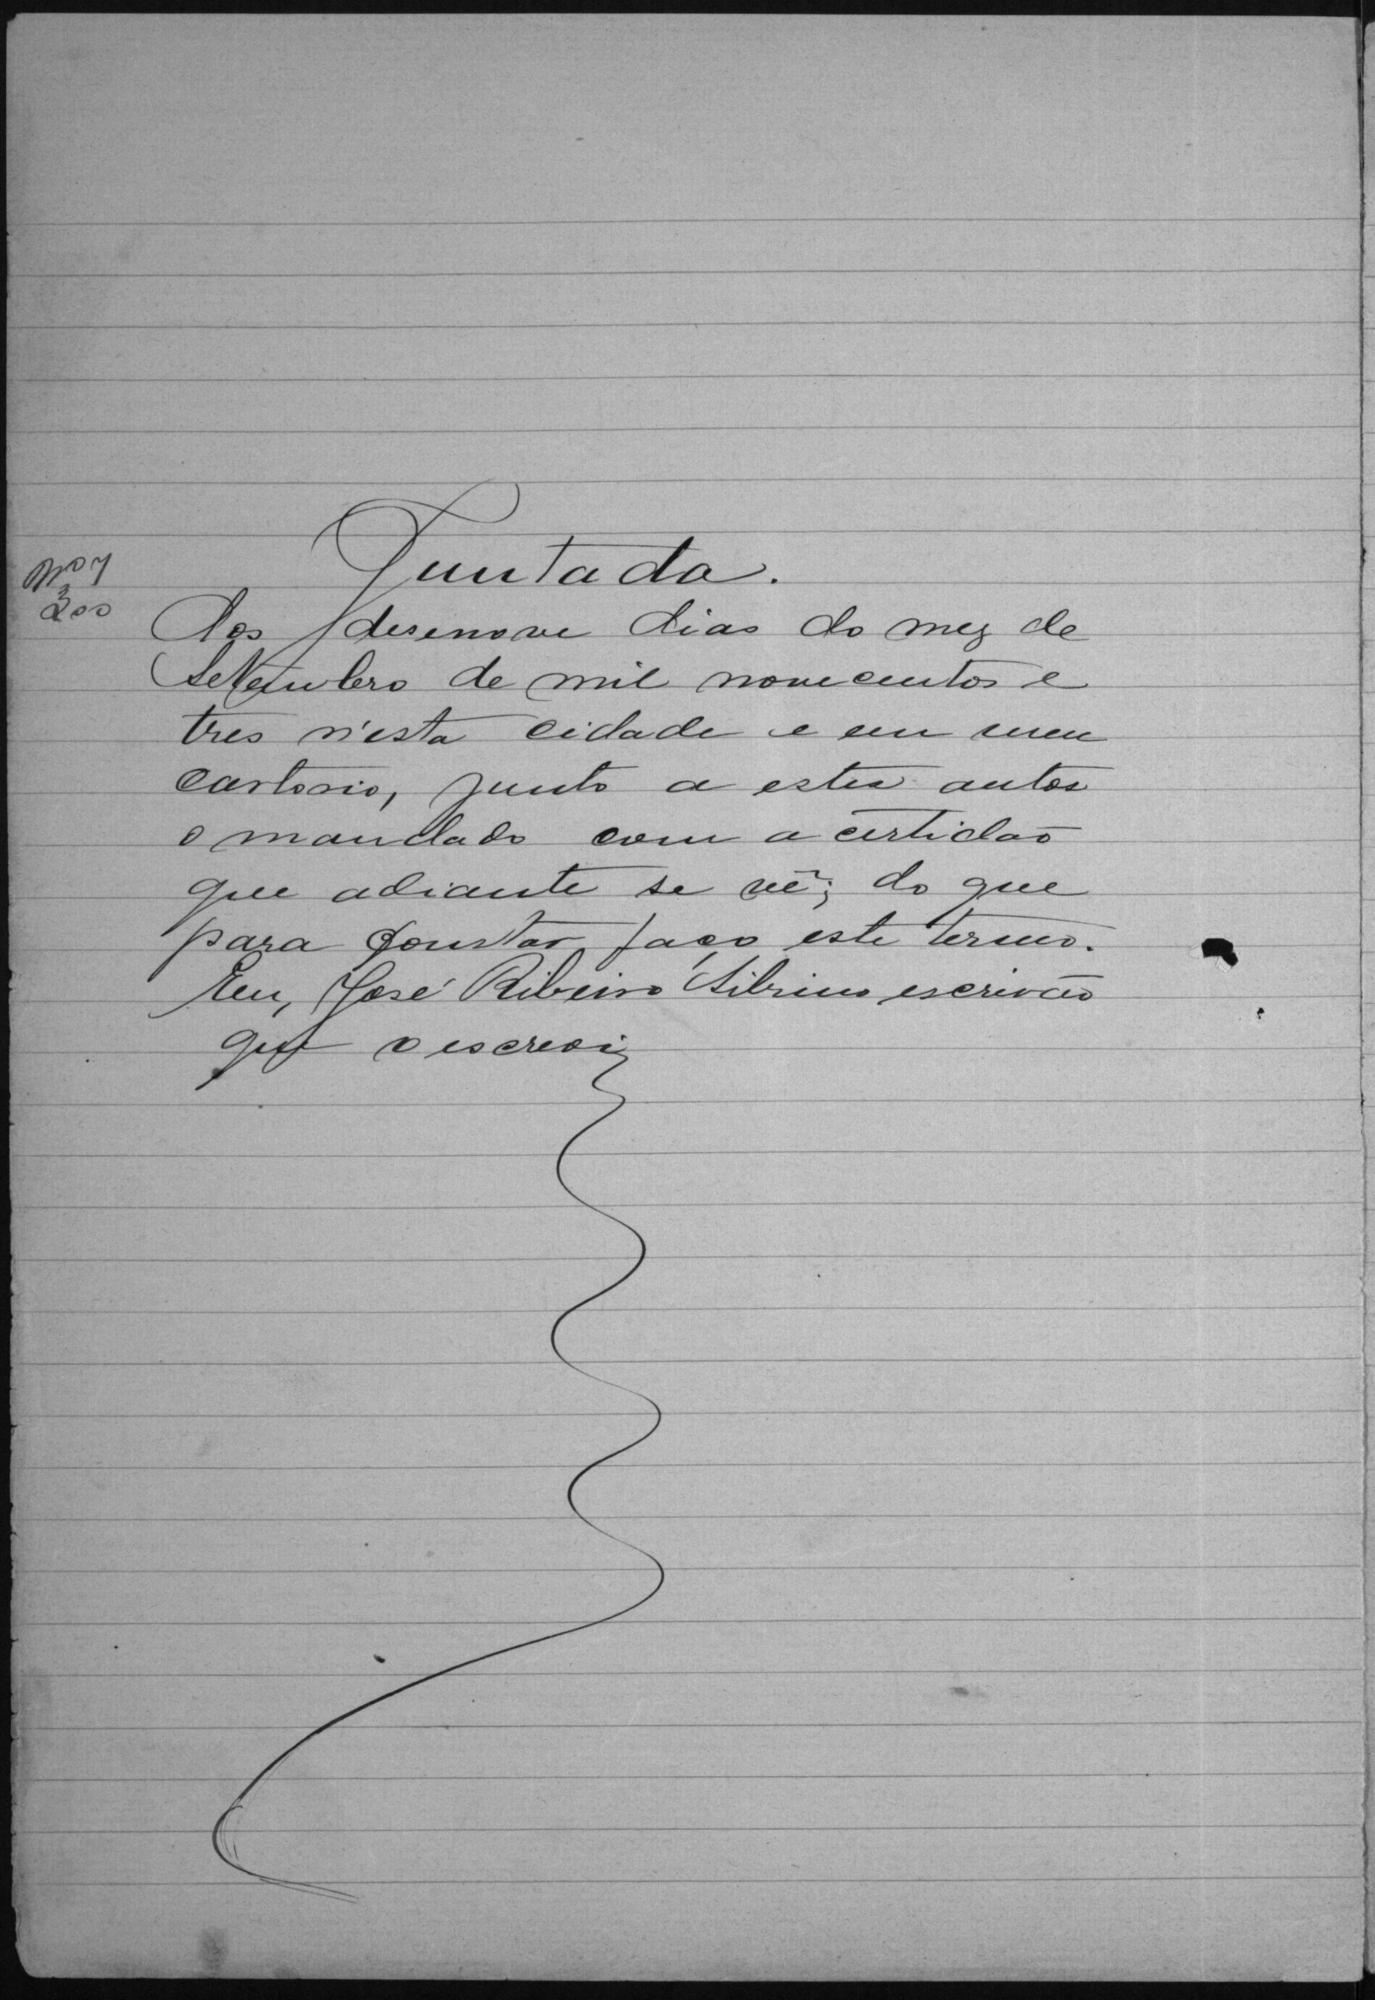 Juntada.
Nº 7
300
Aos desenove dias do mez de
Setembro de mil novecentos e
tres n'esta cidade e em meu
cartorio, junto a estes autos
o mandado com a certidão
que adiante se vê; do que
para constar, faço este termo.
Eu, José Ribeiro escrivão
que o escrevi